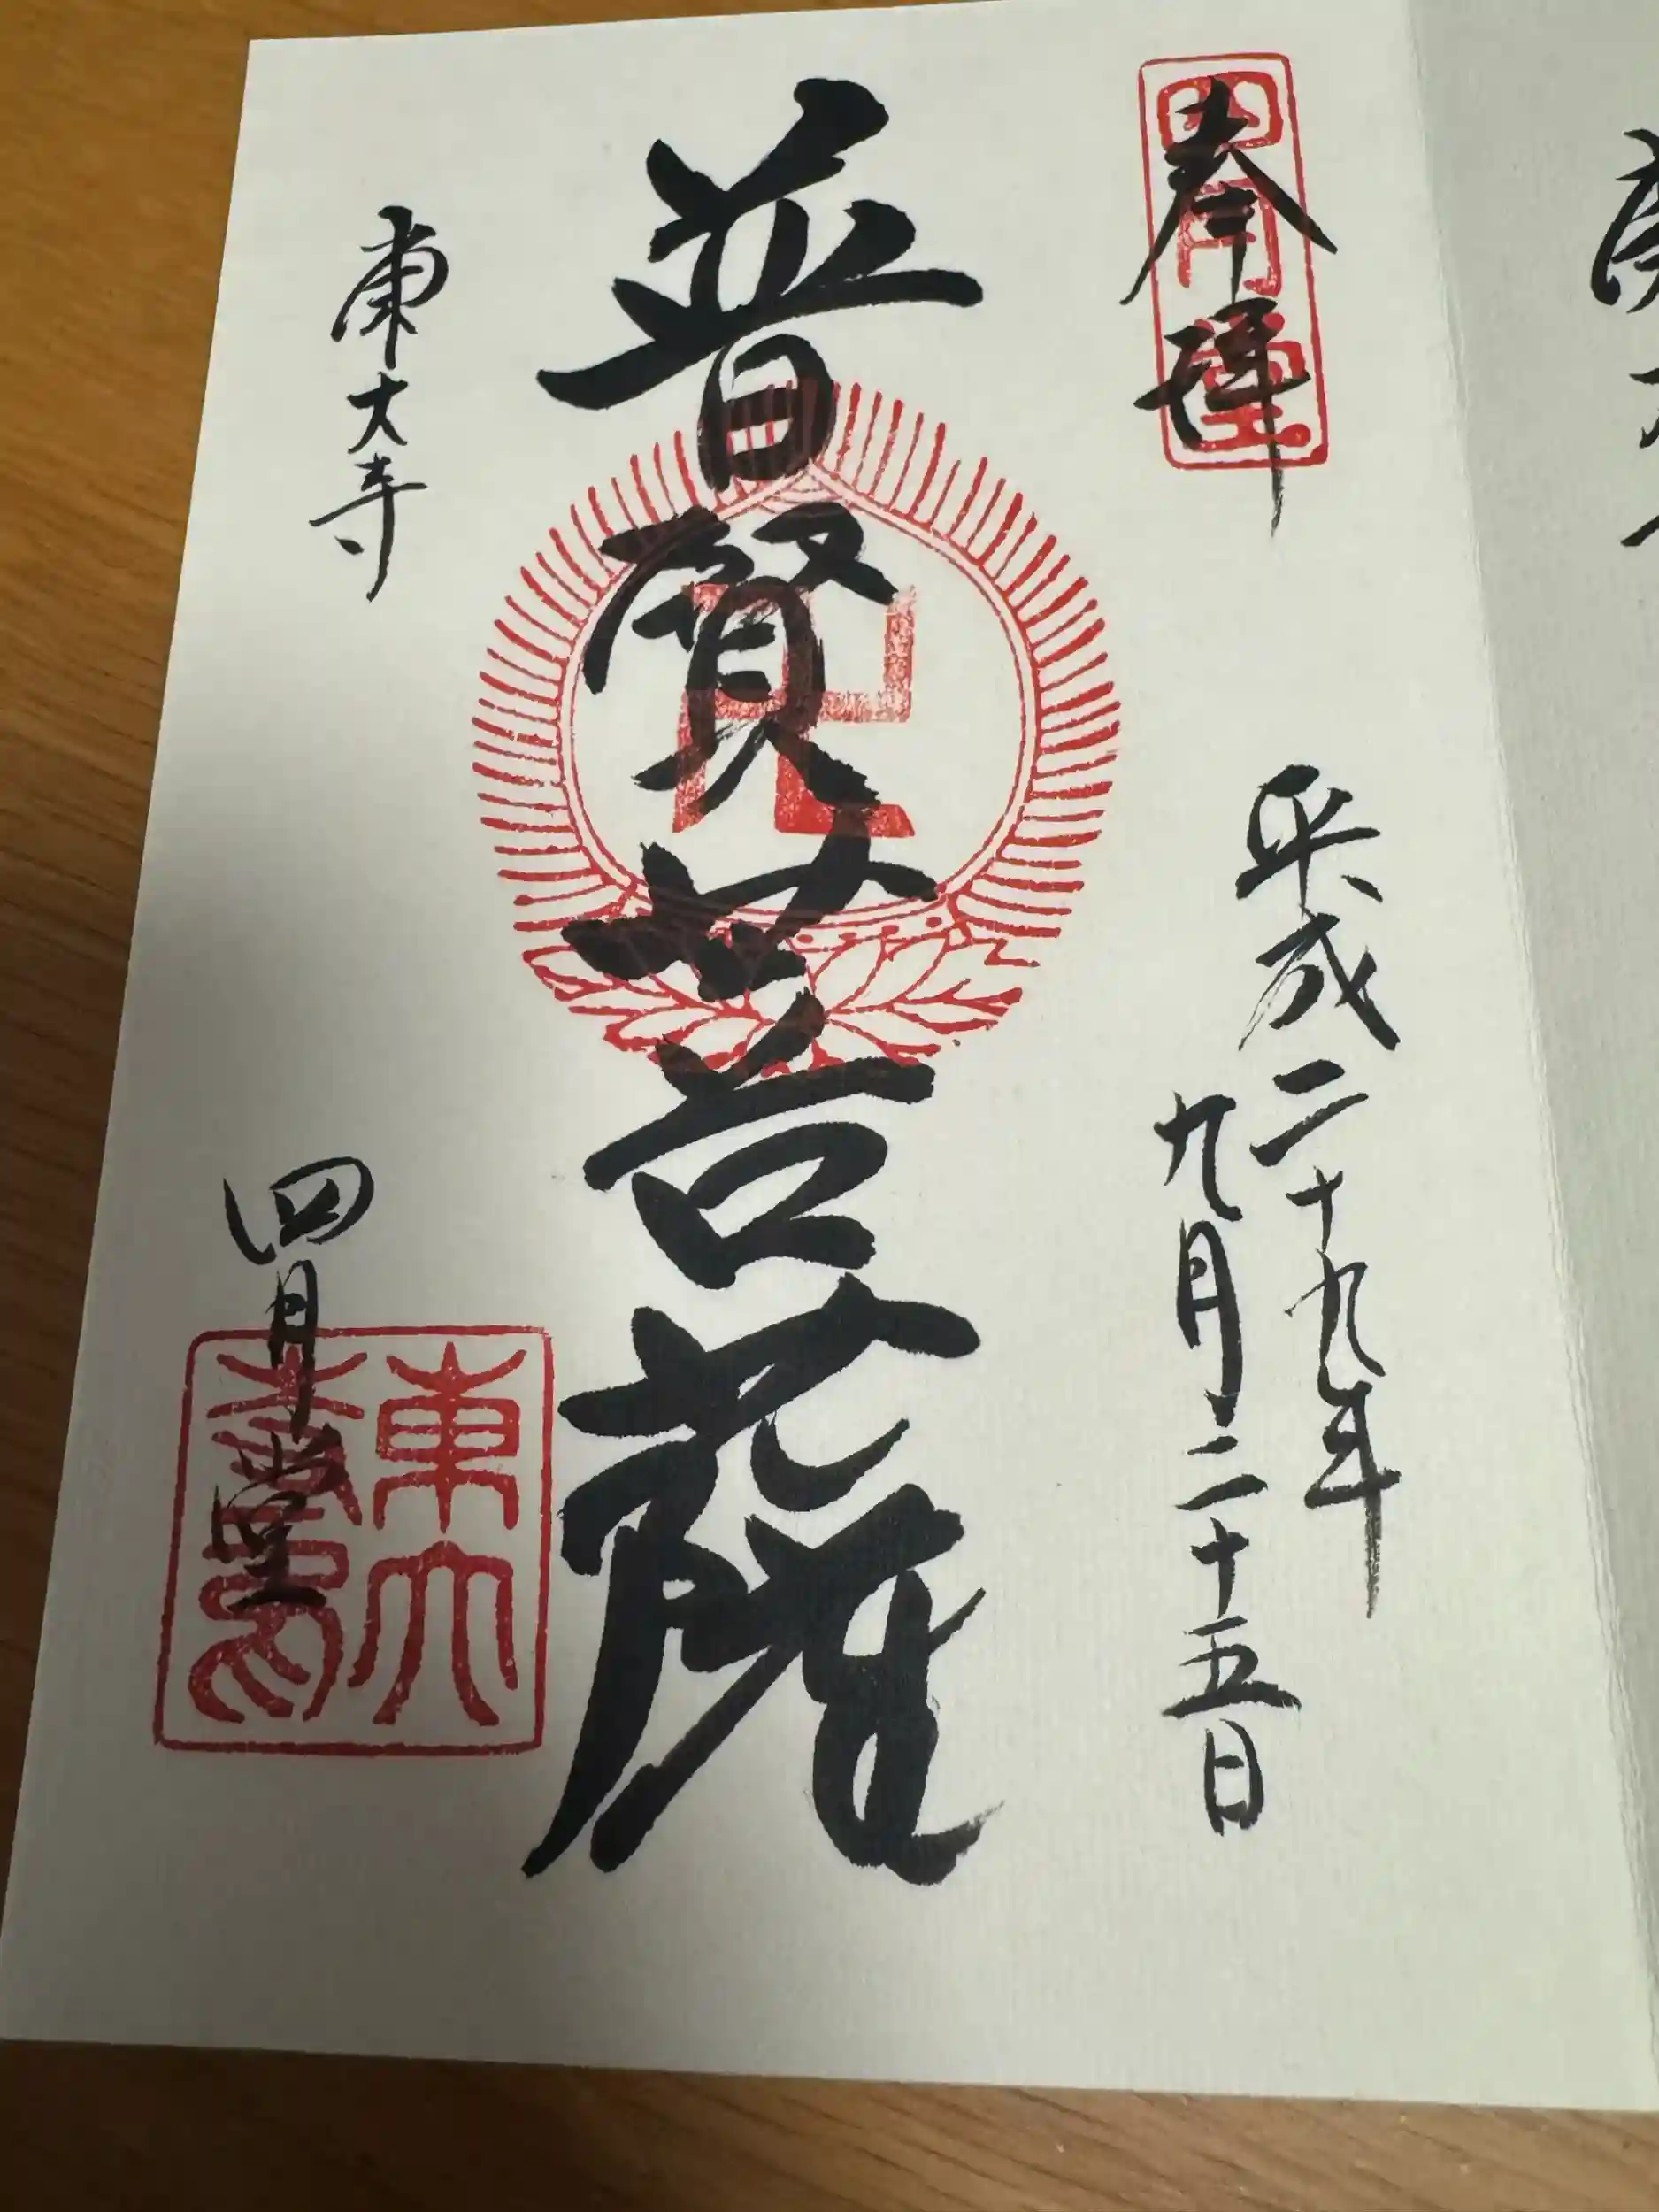 奉拝
四月堂
平成二十九年
九月二十五日
普賢菩薩
東大寺
四月堂
東大寺印